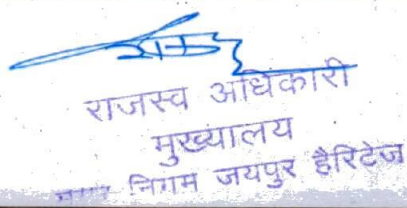 राजस्व अधिकारी
मुख्यालय
निगम जयपुर हैरिटेज